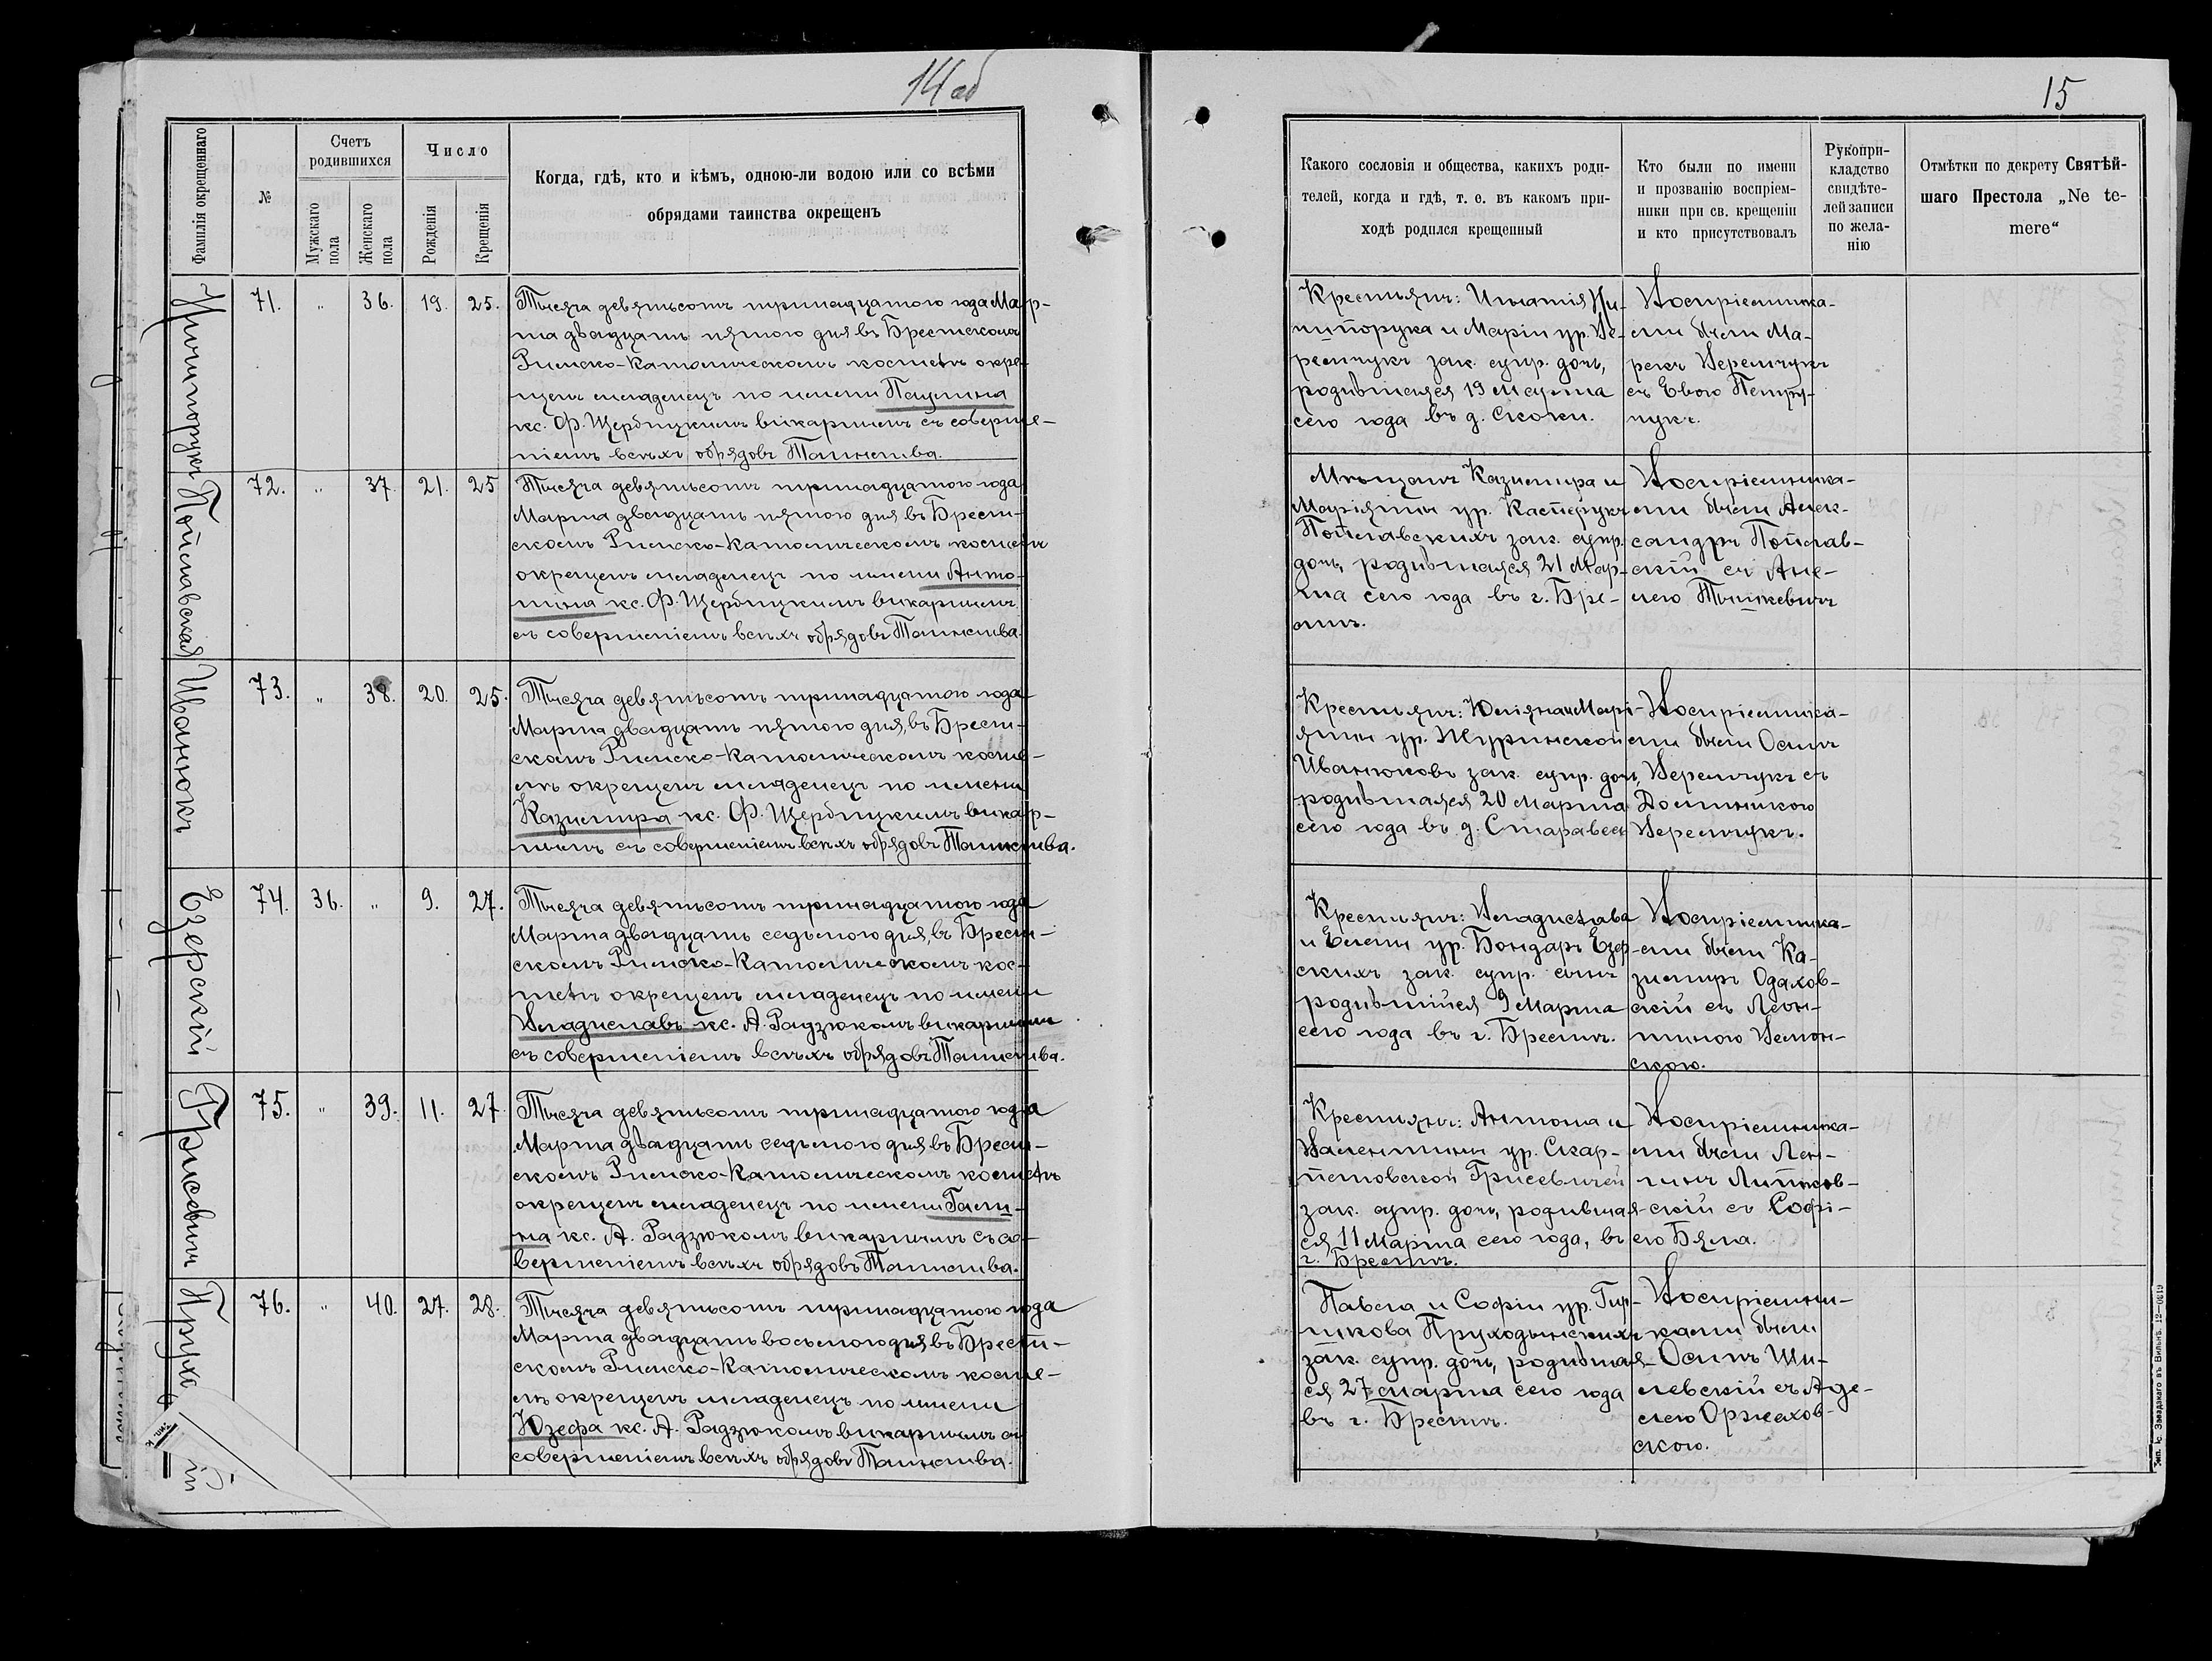 14 об
Фамилія окрещеннаго
№
Счетъ родившихся
Мужскаго пола
Женскаго пола
Число
Рожденія
Крещенія
Когда, гдѣ, кто и кѣмъ, одною-ли водою или со всѣми
обрядами таинства окрещенъ
71. „ 36. 19. 25.
Тысяча девятьсотъ тринадцатого года Мар-
та двадцать пятого дня въ Брестскомъ
Римско-Католическомъ костелѣ окре-
щенъ младенецъ по имени Паулина
кс. Ф. Щербицкимъ викаріемъ съ соверше-
ніемъ всѣхъ обрядовъ Таинства.
Пойлавская
72. „ 37. 21. 25
Тысяча девятьсотъ тринадцатого года
Марта двадцать пятого дня въ Брест-
скомъ Римско-Католическомъ костелѣ
окрещенъ младенецъ по имени Анто-
нина кс. Ф. Щербицкимъ викаріемъ
съ совершеніемъ всѣхъ обрядовъ Таинства.
Иванюкъ
73. „ 38. 20. 25.
Тысяча девятьсотъ тринадцатого года
Марта двадцать пятого дня, въ Брест-
скомъ Римско-Католическомъ косте-
лѣ окрещенъ младенецъ по имени
Казимира кс. Ф. Щербицкимъ викар-
іемъ съ совершеніемъ всѣхъ обрядовъ Таинства.
Езерскій
74. 36. „ 9. 27.
Тысяча девятьсотъ тринадцатого года
Марта двадцать седьмого дня, въ Брест-
скомъ Римско-Католическомъ кос-
телѣ окрещенъ младенецъ по имени
Владиславъ кс. А. Радзюкомъ викаріемъ
съ совершеніемъ всѣхъ обрядовъ Таинства.
Грисевичъ
75. „ 39. 11. 27.
Тысяча девятьсотъ тринадцатого года
Марта двадцать седьмого дня въ Брест-
скомъ Римско-Католическомъ костелѣ
окрещенъ младенецъ по имени Гали-
на кс. А. Радзюкомъ викаріемъ съ со-
вершеніемъ всѣхъ обрядовъ Таинства.
Прухо
76. „ 40. 27. 28.
Тысяча девятьсотъ тринадцатого года
Марта двадцать восьмого дня въ Брест-
скомъ Римско-Католическомъ косте-
лѣ окрещенъ младенецъ по имени
Юзефа кс. А. Радзюкомъ викаріемъ съ
совершеніемъ всѣхъ обрядовъ Таинства.
15
Какого сословія и общества, какихъ роди-
телей, когда и гдѣ, т. е. въ какомъ при-
ходѣ родился крещенный
Кто были по имени
и прозванію воспріем-
ники при св. крещеніи
и кто присутствовалъ
Рукопри-
кладство
свидѣте-
лей записи
по жела-
нію
Отмѣтки по декрету Святѣй-
шаго Престола „Ne te-
mere“
Крестьянъ: Игнатія Ни-
чипорука и Маріи ур. Ве-
ремчукъ зак. супр. дочь,
родившаяся 19 Марта
сего года въ д. Скоки.
Воспріемника-
ми были Ма-
рекъ Веремчукъ
съ Евою Петру-
чукъ.
Мѣщанъ Казимира и
Маріянны ур. Касперукъ
Пойлавскихъ зак. супр.
дочь, родившаяся 21 Мар-
та сего года въ г. Бре-
стѣ.
Воспріемника-
ми были Алек-
сандръ Пойлав-
скій съ Ане-
лею Тышкевичъ
Крестьянъ: Юліяна и Марі-
янны ур. Журинской
Иванюковъ зак. супр. дочь,
родившаяся 20 Марта
сего года въ д. Старавесь
Воспріемника-
ми были Осипъ
Веремчукъ съ
Доминикою
Веремчукъ.
Крестьянъ: Владислава
и Елены ур. Бондарь Езер-
скихъ зак. супр. сынъ
родившійся 9 Марта
сего года въ г. Брестѣ.
Воспріемника-
ми были Ка-
зимиръ Одахов-
скій съ Леон-
тиною
скою.
Крестьянъ: Антона и
Валентины ур. Скар-
Грисевичей
зак. супр. дочь, родившая-
ся 11 Марта сего года, въ
г. Брестѣ.
Воспріемника-
ми были
скій съ Софі-
ею Бяла.
Павла и Софіи ур. Гир-
Пруходьнскихъ
зак. супр. дочь, родившая-
ся 27 марта сего года
въ г. Брестѣ.
Воспріемни-
ками были
Осипъ Ши-
левскій съ Аде-
лею Оржехов-
скою.